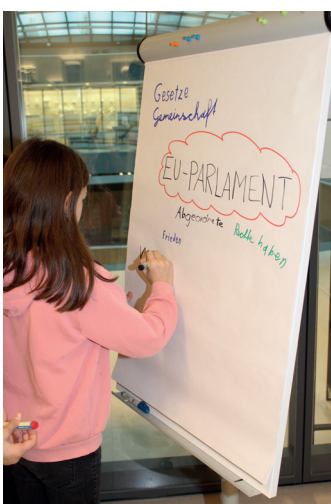 Gesetze
Gemeinschaft
EU-PARLAMENT
Abgeordnete
Rechte haben
Frieden